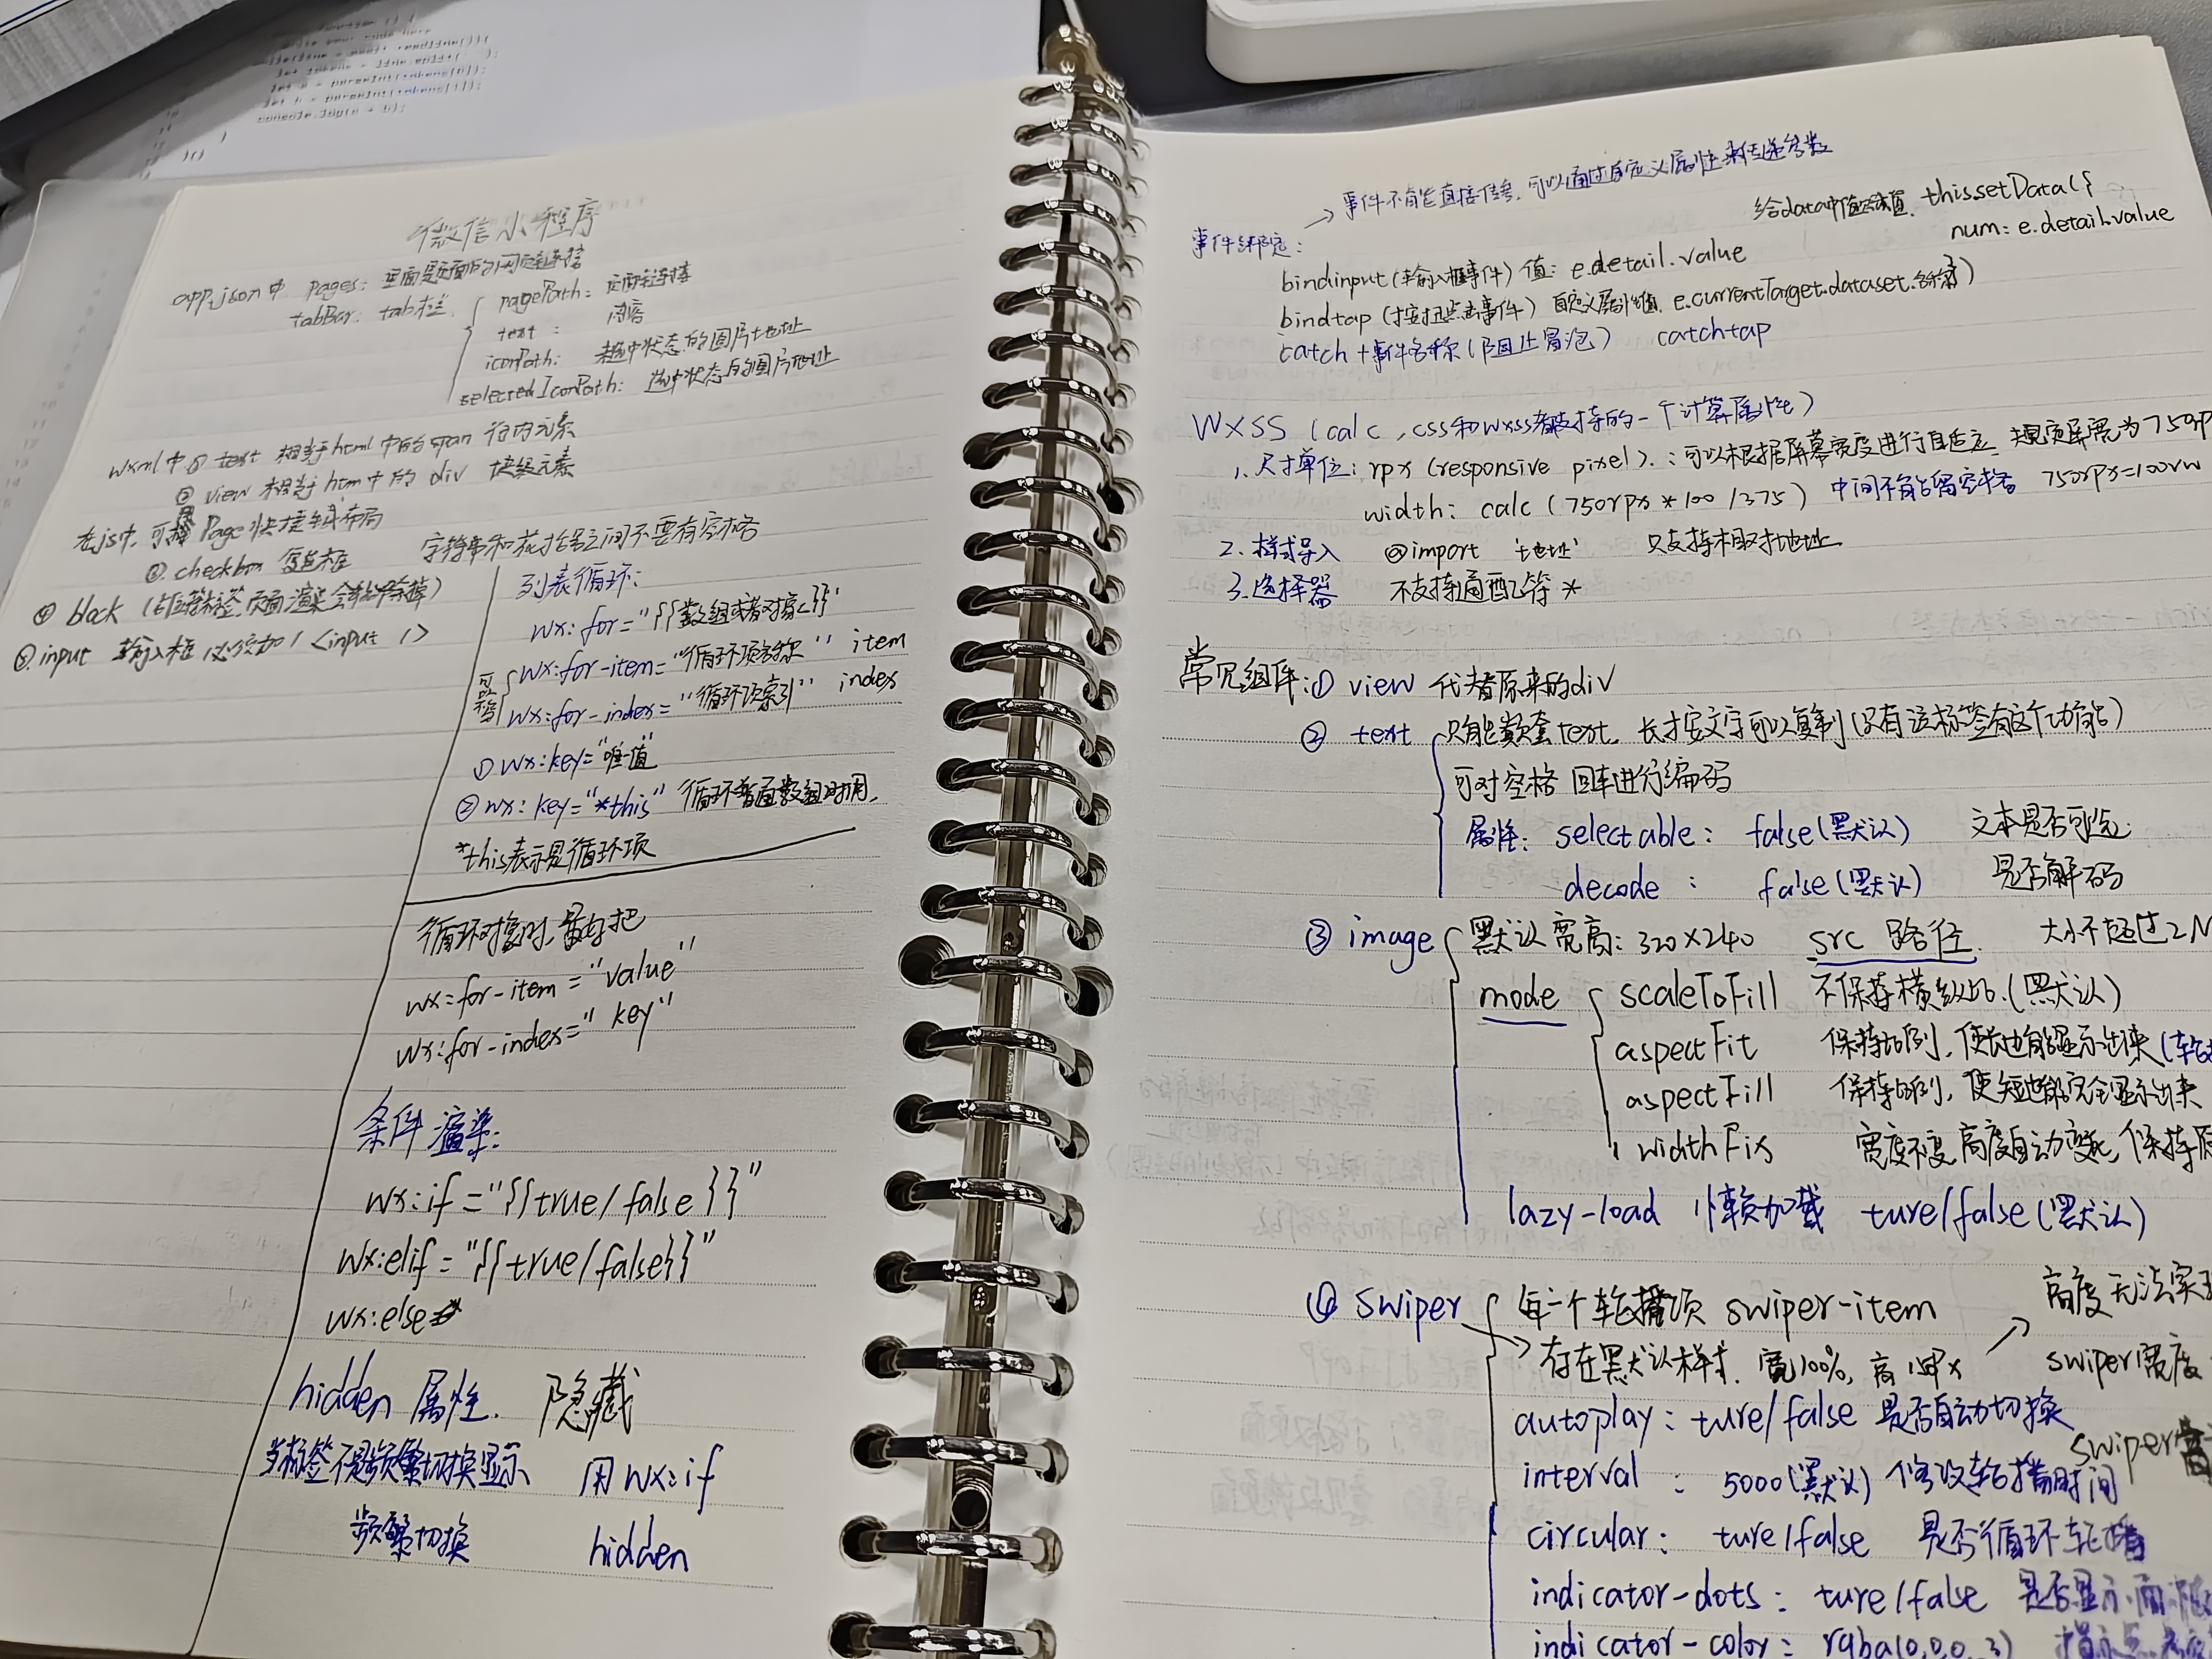 微信小程序
app.json中 pages: 里面是页面的网页连接
tabBar: tab栏 { pagePath: 页面连接
text: 内容
iconPath: 未选中状态的图片地址
selectedIconPath: 选中状态后的图片地址
wxml中① text 相当html中的span 行内元素
② view 相当htm中的 div 块级元素
在js中,可用Page快捷生成布局
字符串和花括号之间不要有空格
③ checkbox 复选框
④ block (占位符标签,页面渲染会移除掉)
⑤ input 输入框 必须加/ <input />
列表循环:
wx:for="{{数组或者对象}}"
可省略 { wx:for-item="循环项名称" item
wx:for-index="循环项索引" index
① wx:key="唯一值"
② wx:key="*this" 循环普通数组时用.
*this表示是循环项
循环对象时,最好把
wx:for-item="value"
wx:for-index="key"
条件渲染:
wx:if="{{true/false}}"
wx:elif="{{true/false}}"
wx:else
hidden 属性. 隐藏
当标签不是频繁切换显示 用wx:if
频繁切换 hidden
→ 事件不能直接传参,可以通过自定义属性来传递参数
给data中值赋值. this.setData({
num: e.detail.value
事件绑定:
bindinput(输入框事件) 值: e.detail.value
bindtap (按钮点击事件) 自定义属性值. e.currentTarget.dataset.名称)
catch+事件名称(阻止冒泡) catchtap
WXSS (calc,css和wxss都支持的一个计算属性)
1. 尺寸单位: rpx (responsive pixel).: 可以根据屏幕宽度进行自适应. 规定屏宽为750rp
width: calc (750rpx*100/375) 中间不能留空格 750rpx=100vw
2. 样式导入 @import '地址' 只支持相对地址
3. 选择器 不支持通配符 *
常见组件:① view 代替原来的div
② text { 只能嵌套text. 长按文字可以复制(只有该标签有这个功能)
可对空格 回车进行编码
属性: selectable: false(默认) 文本是否可选
decode: false(默认) 是否解码
③ image { 默认宽高: 320×240 src 路径. 大小不超过2M
mode { scaleToFill 不保持横纵比.(默认)
aspectFit 保持比例,使长边能显示出来(轮
aspectFill 保持比例,使短边能完全显示出来
widthFix 宽度不变,高度自动变化,保持原
lazy-load 懒加载 ture/false(默认)
④ swiper { 每一个轮播项 swiper-item
→ 存在默认样式. 宽100%, 高150px
高度无法实现
swiper宽度
autoplay: ture/false 是否自动切换
swiper高
interval: 5000(默认) 修改轮播时间
circular: ture/false 是否循环轮播
indicator-dots: ture/false 是否显示面板
indicator-color: rgba(0,0,0,.3) 指示点